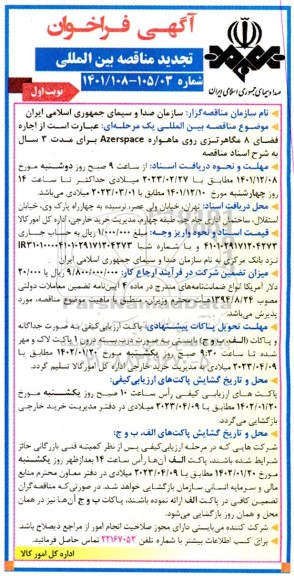 آگهی فراخوان
تجدید مناقصه بین المللی
شماره ۱۴۰۱/۱۰۸-۱۰۵/۰۳
صدا و سیمای جمهوری اسلامی ایران
نوبت اول
نام سازمان مناقصه‌گزار: سازمان صدا و سیمای جمهوری اسلامی ایران
موضوع مناقصه بین المللی یک مرحله‌ای: عبارت است از اجاره
فضای ۸ مگاهرتزی روی ماهواره Azerspace برای مدت ۳ سال
به شرح اسناد مناقصه
مهلت و نحوه دریافت اسناد: از ساعت ۹ صبح روز دوشنبه مورخ
۱۴۰۱/۱۲/۰۸ مطابق با ۲۰۲۳/۰۲/۲۷ میلادی حداکثر تا ساعت ۱۴
روز چهارشنبه مورخ ۱۴۰۱/۱۲/۱۰ مطابق با ۲۰۲۳/۰۳/۰۱ می‌باشد
محل دریافت اسناد: تهران، خیابان ولی عصر، نرسیده به چهارراه پارک وی، خیابان
استقلال، ساختمان اداری جام جم، طبقه چهارم، مدیریت خرید خارجی، اداره کل امور کالا
قیمت اسناد و نحوه واریز وجه: مبلغ ۱/۰۰۰/۰۰۰ ریال به حساب جاری
۴۱۰۱۰۲۹۱۷۱۲۰۴۲۷۳ و با شماره شبا
نزد بانک مرکزی به نام سازمان صدا و سیمای جمهوری اسلامی ایران
میزان تضمین شرکت در فرآیند ارجاع کار: ۹/۸۰۰/۰۰۰/۰۰۰ ریال یا ۲۰/۰۰۰
دلار آمریکا انواع ضمانت‌نامه‌های مندرج در ماده ۴ آیین‌نامه تضمین معاملات دولتی
مصوب ۱۳۹۴/۸/۲۴ هیأت محترم وزیران منطبق با ماهیت موضوع مناقصه، مورد
پذیرش می‌باشد.
مهلت تحویل پاکات پیشنهادی: پاکت ارزیابی کیفی به صورت جداگانه
و پاکات (الف، ب و ج) بایستی به صورت درب بسته درون ۱ پاکت لاک و مهر
شده تا ساعت ۹:۳۰ صبح روز یکشنبه مورخ ۱۴۰۲/۰۱/۲۰ مطابق با
۲۰۲۳/۰۴/۰۹ میلادی به مدیریت خرید خارجی اداره کل امور کالا تسلیم گردد.
محل و تاریخ گشایش پاکت‌های ارزیابی‌کیفی:
پاکت های ارزیابی کیفی رأس ساعت ۱۰ صبح روز یکشنبه مورخ
۱۴۰۲/۰۱/۲۰ مطابق با ۲۰۲۳/۰۴/۰۹ میلادی در دفتر مدیریت خرید خارجی
بازگشایی می‌گردد.
محل و تاریخ گشایش پاکت‌های الف، ب و ج:
شرکت هایی که در مرحله ارزیابی‌کیفی پس از نظر کمیته فنی بازرگانی حائز
شرایط شده باشند، پاکت الف آن‌ها رأس ساعت ۱۴ بعدازظهر روز یکشنبه
مورخ ۱۴۰۲/۰۱/۲۰ مطابق با ۲۰۲۳/۰۴/۰۹ میلادی در دفتر معاون محترم منابع
مالی و سرمایه انسانی سازمان بازگشایی خواهد شد. در صورتی که مناقصه‌گران
تضمین کافی در پاکت الف ارائه نموده باشند، پاکات ب و ج آن‌ها نیز در همان
محل و همان روز بازگشایی می‌شود.
شرکت کننده می‌بایستی دارای مجوز صلاحیت انجام امور از مراجع ذیصلاح باشد.
برای کسب اطلاعات بیشتر با شماره تلفن ۲۲۱۶۷۰۵۳ تماس حاصل فرمائید.
اداره کل امور کالا